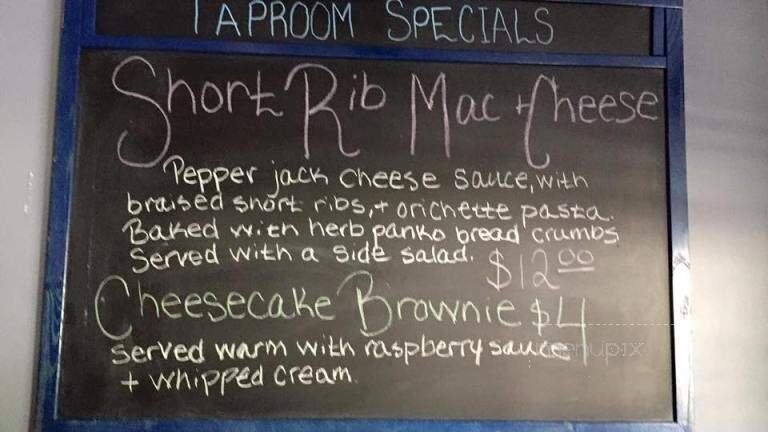 TAPROOM SPECIALS
Short Rib Mac + Cheese
Pepper jack cheese sauce, with
braised short ribs, + orichette pasta.
Baked with herb panko bread crumbs
Served with a side salad. $12.00
Cheesecake Brownie $4
served warm with raspberry sauce
+ whipped cream.